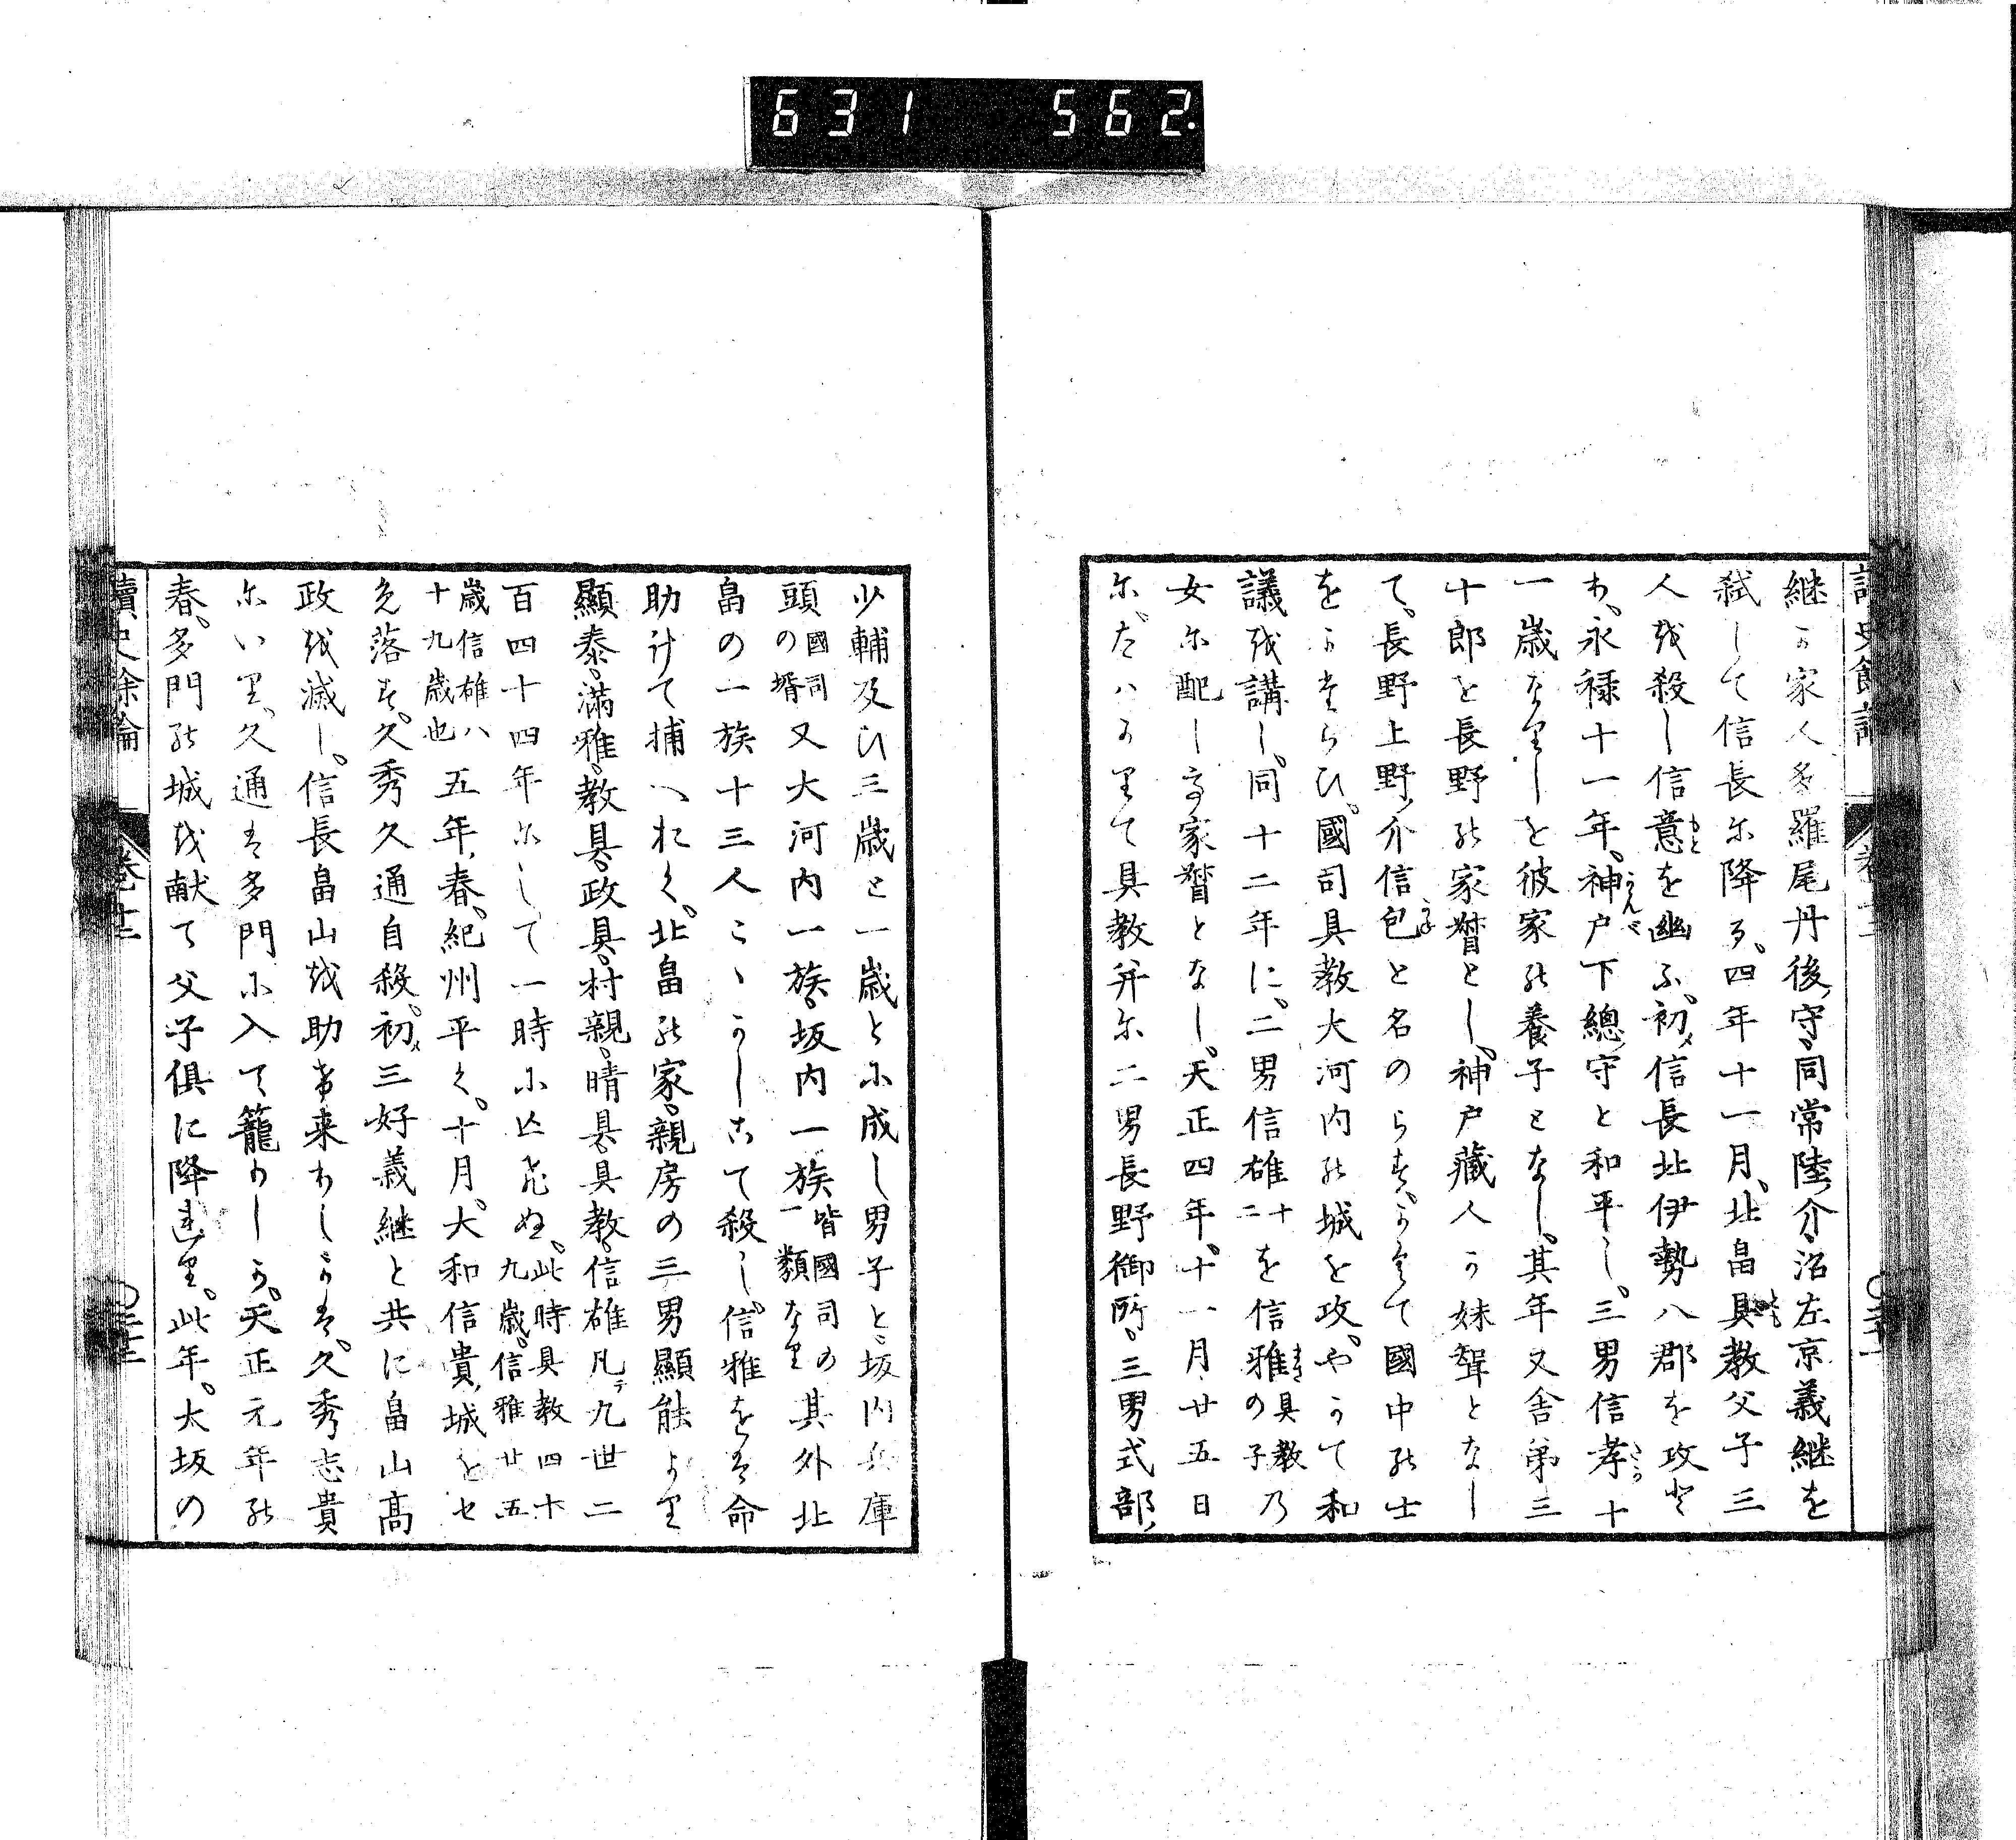 631 562
継か家人多羅尾丹後守、同常陸介、沼左京義継を
弑して信長に降る、四年十一月、北畠具教父子三
人を殺し信意を幽ふ、初メ信長北伊勢八郡を攻と
き、永禄十一年、神戸下總守と和平し、三男信孝十
一歳なりしを彼家の養子となし、其年又舎弟三
十郎を長野の家督とし、神戸藏人か妹聟となし
て、長野上野ノ介信包と名のらす、かくて國中の士
をかたらひ、國司具教大河内の城を攻、やかて和
議を講し、同十二年に、二男信雄十二を信雅具教の子乃
女に配し家督となし、天正四年、十一月廿五日
にたはかりて具教并に二男長野御所、三男式部ノ
少輔及ひ三歳と一歳とに成し男子と、坂内兵庫
頭國司の壻又大河内一族、坂内一族皆國司の一類なり其外北
畠の一族十三人こゝかしこにて殺し、信雅をは命
助けて捕へおく、北畠の家、親房の三男顯能より
顯泰、滿雅、教具、政具、村親、晴具、具教、信雄凡テ九世二
百四十四年にして一時に亡ひぬ、此時具教四十九歳、信雅廿五
歳信雄八十九歳也五年、春、紀州平く、十月、大和信貴ノ城をせ
め落す、久秀久通自殺、初メ三好義継と共に畠山高
政を滅し、信長畠山を助け来りしかは、久秀志貴
にいり、久通は多門に入て籠りしか、天正元年の
春、多門の城を献て父子倶に降れり、此年、大坂の
讀史餘論 巻十二